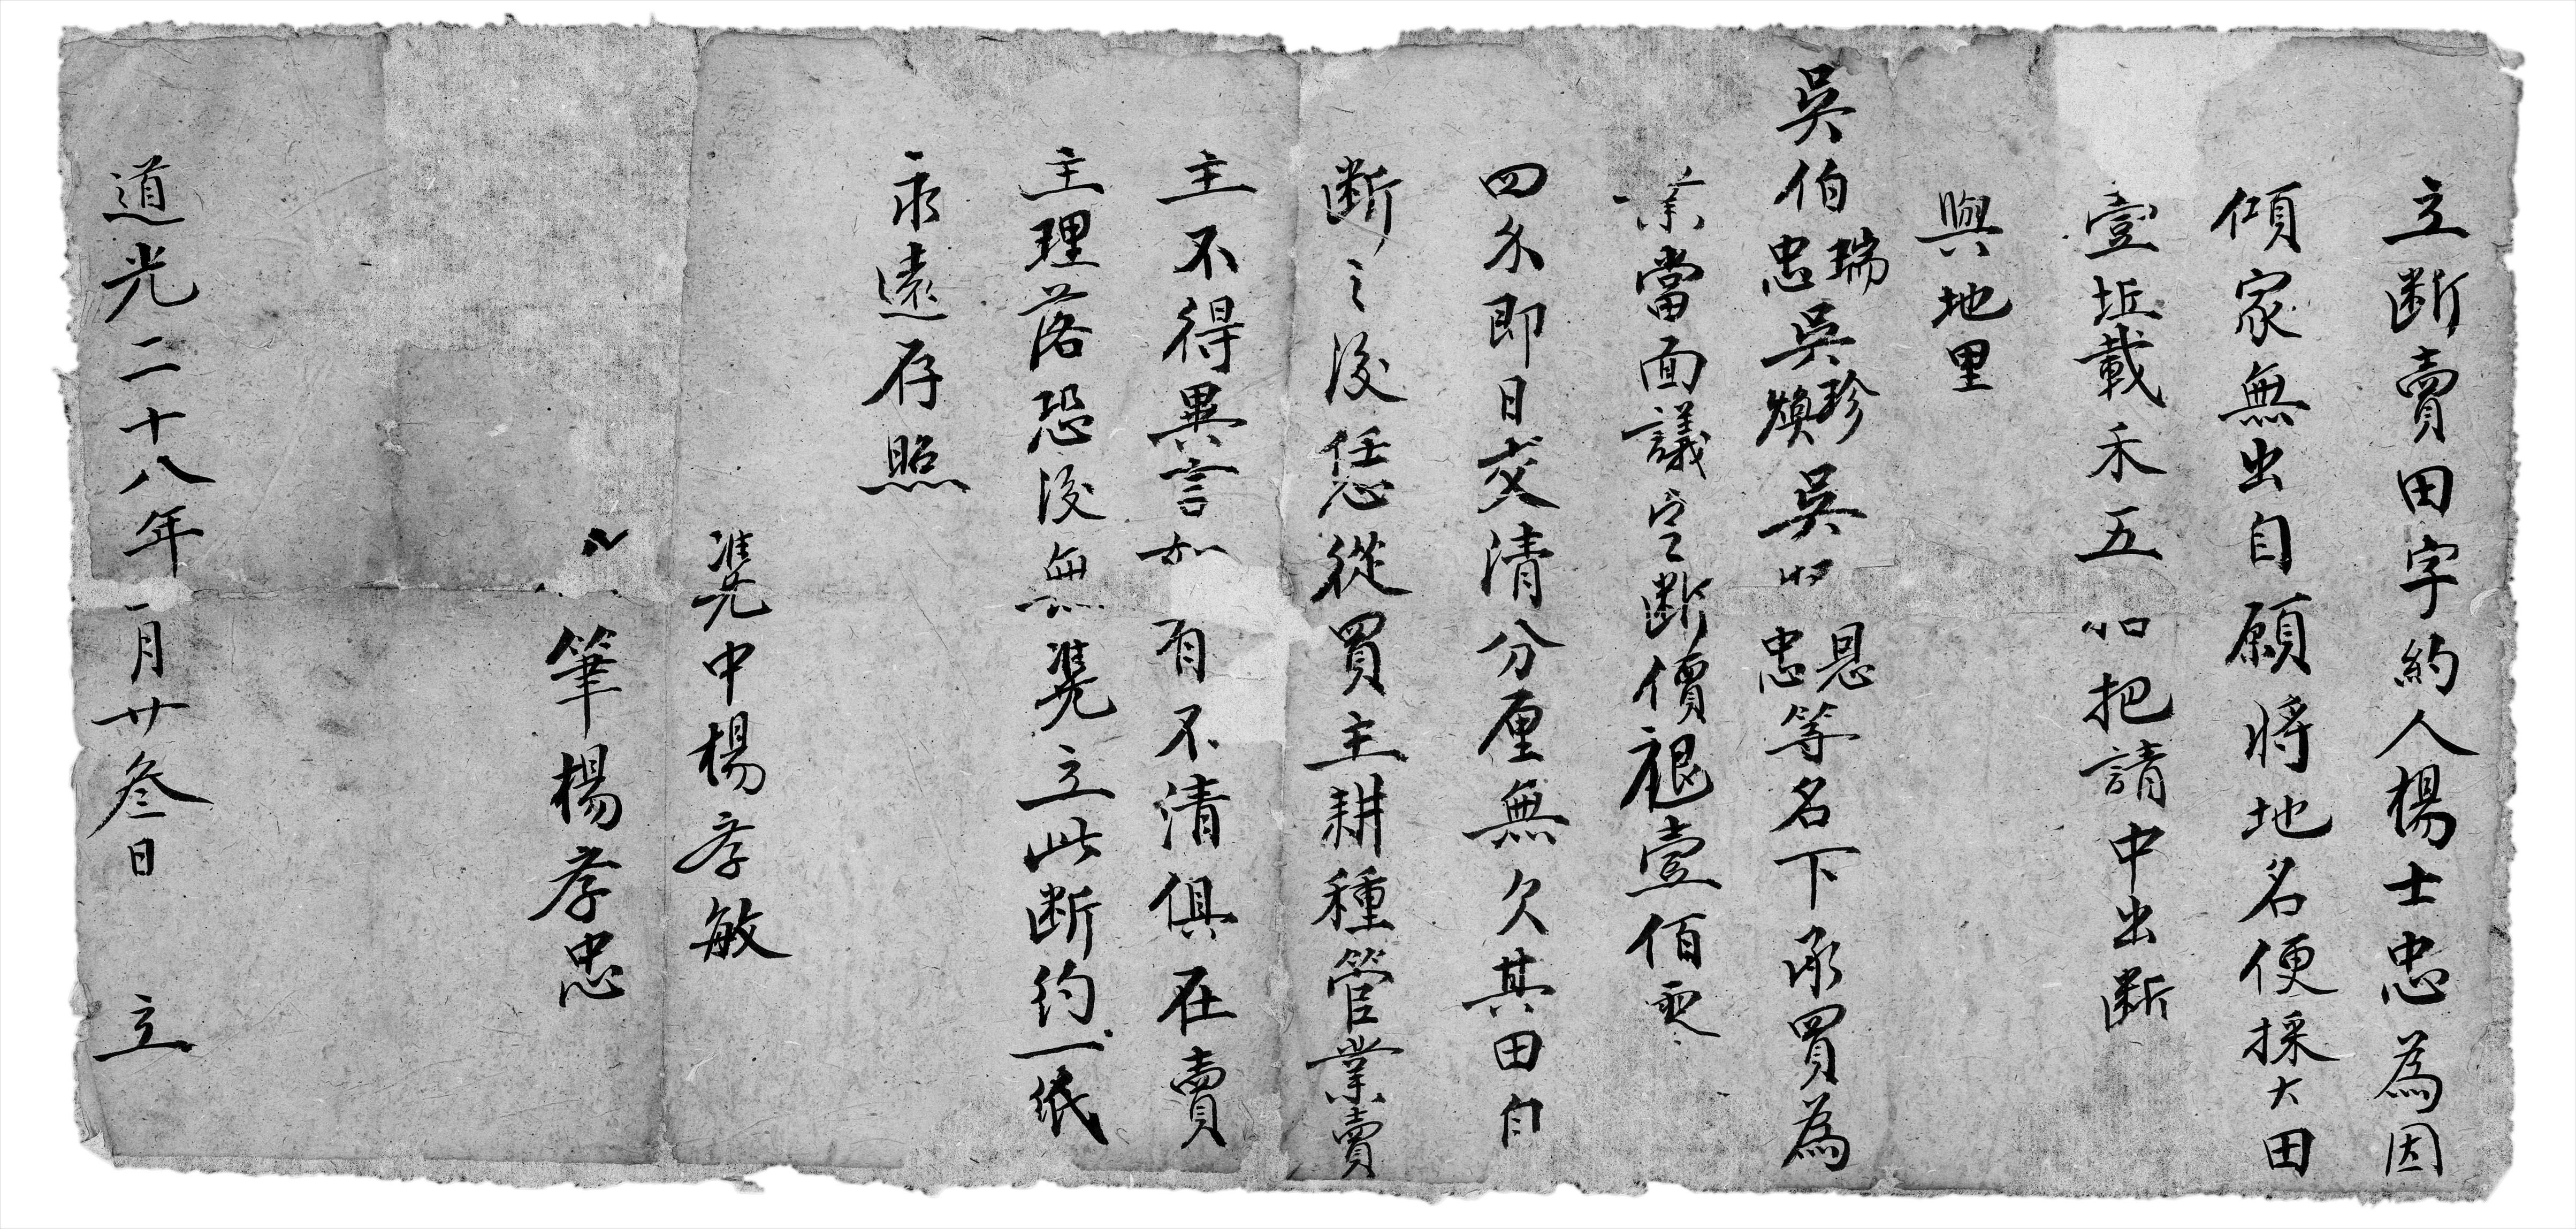 立断賣田字約人楊士忠為因
傾家無出自願將地名便採大田
壹坵載禾五把請中出断
與地里
吳伯瑞忠吳珍煥吳恩忠等名下承買為
業當面議定断價艰壹佰零
四㕣即日交清分厘無欠其田自
断之後恁從買主耕種管業賣
主不得異言如有不清俱在賣
主理落恐後無凴立此断約一紙
永遠存照
凴中楊孝敏
筆楊孝忠
道光二十八年月廿叄日立